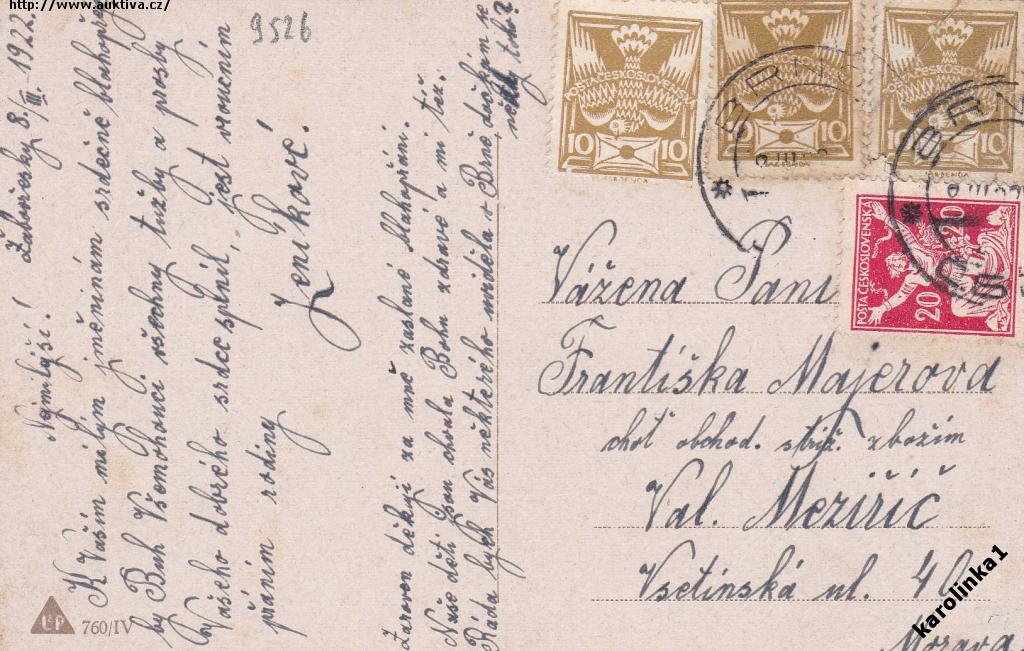 http://www.auktiva.cz/
9526
Žabovřesky 8/III. 1922.
Nejmilejší!
K Vašim milým jmeninám srdečně blahopřeji
by Bůh Všemohoucí všechny tužby a prosby
Vašeho dobrého srdce splnil, jest vroucím
přáním rodiny
Zeníkové.
Zároveň děkuji za mně zaslané blahopřání.
Naše děti jsou chvála Bohu zdravé a mi též.
Ráda bych Vás některého viděla v Brně dočkám se
toho?
POSTA ČESKOSLOVENSKÁ
10 10
POSTA ČESKOSLOVENSKÁ
10
POSTA ČESKOSLOVENSKÁ
10 10
POSTA ČESKOSLOVENSKÁ
20 20
BRNO
BRNO
Vážena Paní
Františka Majerova
choť obchod. střiž. zbožím
Val. Meziříč
Vsetínská ul. 40
Morava
760/IV
karolinka1